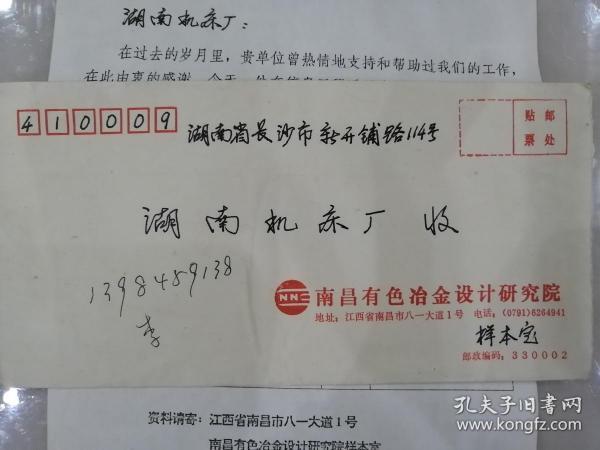 湖南机床厂：
在过去的岁月里，贵单位曾热情地支持和帮助过我们的工作，
在此由衷的感谢。今天，
410009
贴邮
票处
湖南省长沙市新开铺路114号
湖南机床厂 收
1398459138
李
NNC
南昌有色冶金设计研究院
地址：江西省南昌市八一大道1号 电话：(0791)6264941
样本室
邮政编码：330002
资料请寄：江西省南昌市八一大道1号
南昌有色冶金设计研究院样本室
孔夫子旧书网
www.kongfz.com